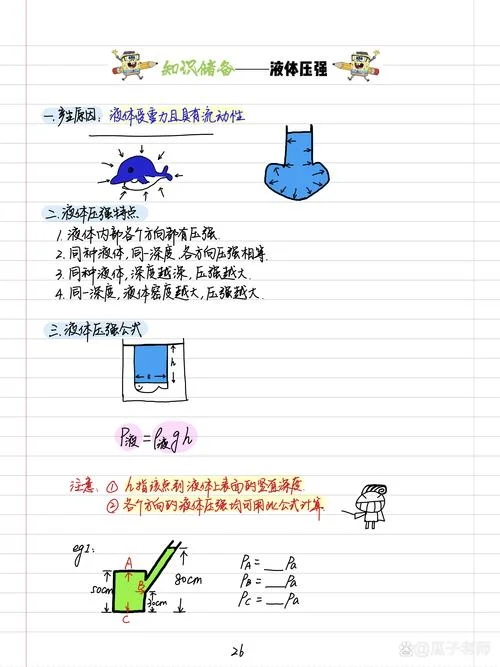 知识储备——液体压强
一.产生原因：液体受重力且具有流动性
二.液体压强特点
1.液体内部各个方向都有压强.
2.同种液体,同一深度,各方向压强相等.
3.同种液体,深度越深,压强越大.
4.同一深度,液体密度越大,压强越大.
三.液体压强公式
s
h
P液=ρ液gh
注意：① h指该点到液体上表面的竖直深度.
② 各个方向的液体压强均可用此公式计算.
eg1:
A
B
C
50cm
30cm
80cm
PA=__Pa
PB=__Pa
PC=__Pa
26
@瓜子老师